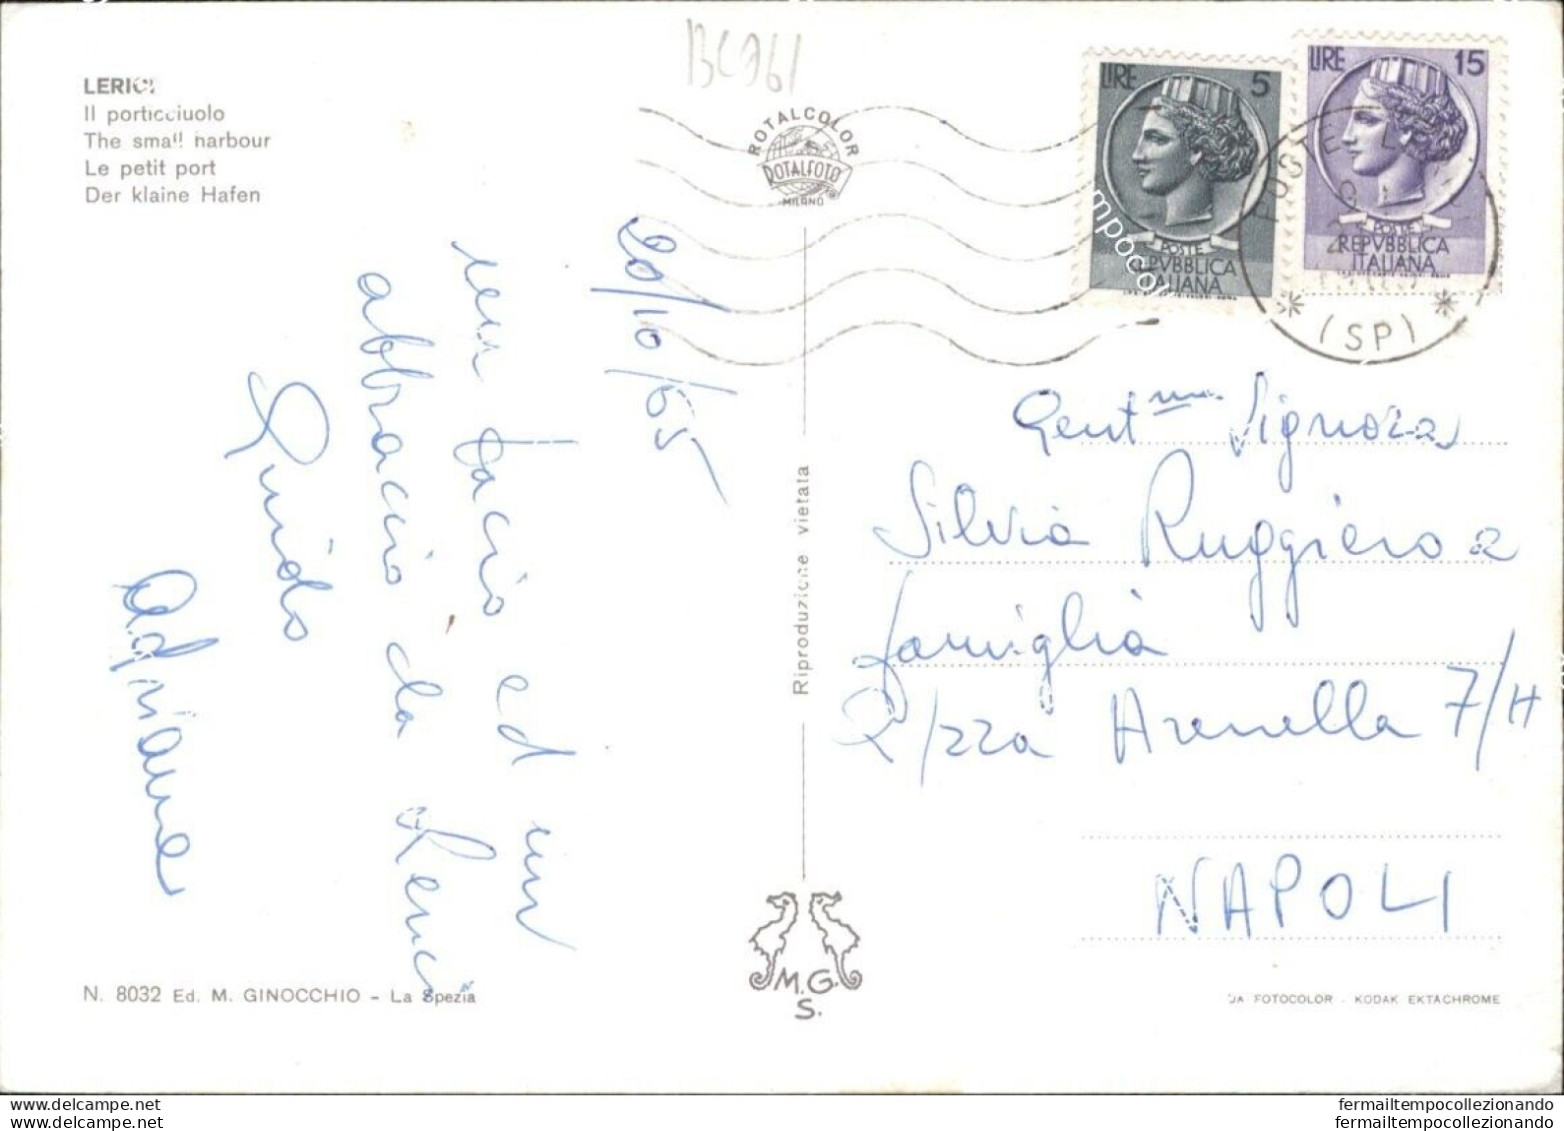 BC961
LERICI
Il porticciuolo
The small harbour
Le petit port
Der klaine Hafen
ROTALCOLOR
ROTALFOTO
MILANO
LIRE 5
POSTE
REPVBBLICA
ITALIANA
LIRE 15
POSTE
REPVBBLICA
ITALIANA
(SP)
20/10/65
un bacio ed un
abbraccio da Lerici
Guido
Adriana
Gent.ma Signora
Silvia Ruggiero e
famiglia
P/zza Arenella 7/H
NAPOLI
Riproduzione vietata
M.G.
S.
N. 8032 Ed. M. GINOCCHIO - La Spezia
DA FOTOCOLOR - KODAK EKTACHROME
fermailtempocollezionando
fermailtempocollezionando
fermailtempocollezionando
fermailtempocollezionando